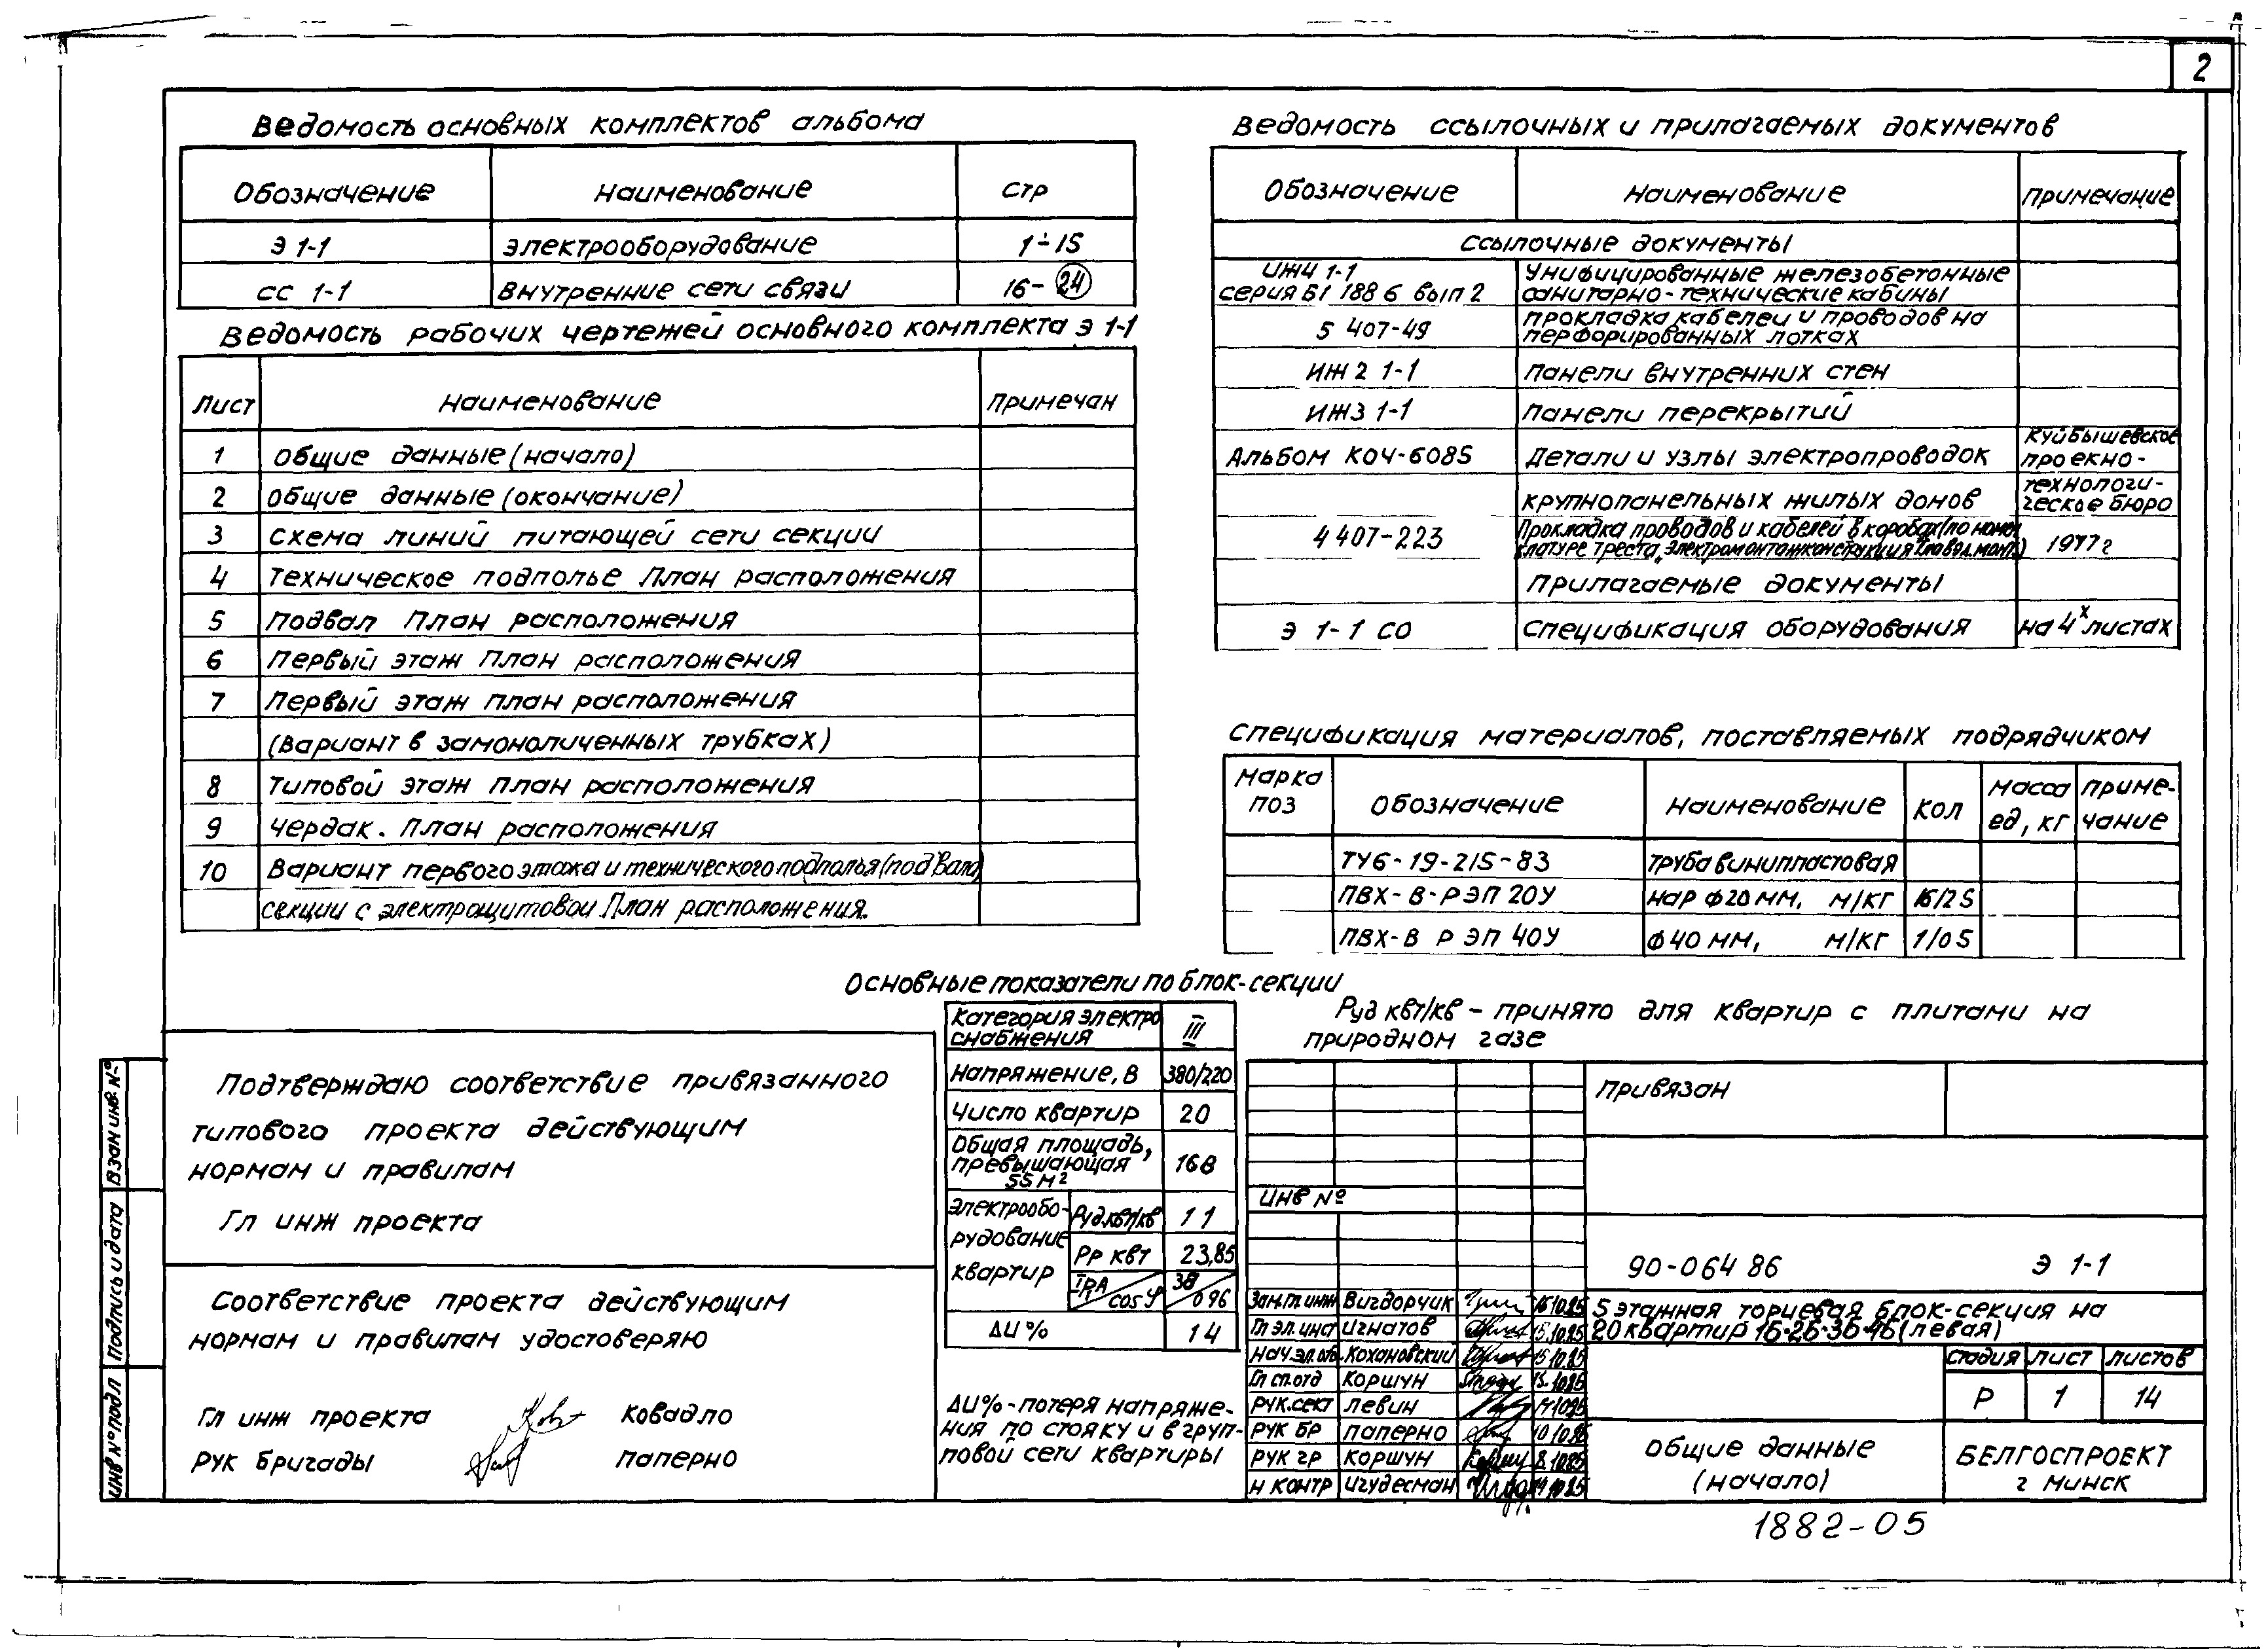 2
Ведомость основных комплектов альбома
Обозначение Наименование Стр
Э 1-1 Электрооборудование 1-15
СС 1-1 Внутренние сети связи 16-24
Ведомость рабочих чертежей основного комплекта Э 1-1
Лист Наименование Примечан
1 Общие данные (начало)
2 Общие данные (окончание)
3 Схема линий питающей сети секции
4 Техническое подполье План расположения
5 Подвал План расположения
6 Первый этаж План расположения
7 Первый этаж План расположения
(Вариант в замоноличенных трубках)
8 Типовой этаж План расположения
9 Чердак. План расположения
10 Вариант первого этажа и технического подполья (подвала)
секции с электрощитовой План расположения.
Ведомость ссылочных и прилагаемых документов
Обозначение Наименование Примечание
Ссылочные документы
ИЖ4 1-1 Унифицированные железобетонные
серия Б1 188 6 вып 2 санитарно-технические кабины
5 407-49 Прокладка кабелей и проводов на
перфорированных лотках
ИЖ 2 1-1 Панели внутренних стен
ИЖ3 1-1 Панели перекрытий
Альбом КОЧ-6085 Детали и узлы электропроводок Куйбышевское
проекно-
крупнопанельных жилых домов технологи-
ческое бюро
4 407-223 Прокладка проводов и кабелей в коробах (по номен
клатуре треста „Электромонтажконструкция" 1977г
Прилагаемые документы
Э 1-1 СО Спецификация оборудования на 4х листах
Спецификация материалов, поставляемых подрядчиком
Марка поз Обозначение Наименование Кол Масса ед, кг Примечание
ТУ6-19-215-83 Труба винипластовая
ПВХ-В-Р ЭП 20У нар ф20 мм, м/кг 16/2 5
ПВХ-В Р ЭП 40У ф40 мм, м/кг 1/0 5
Основные показатели по блок-секции
Категория электро
снабжения III
Напряжение, В 380/220
Число квартир 20
Общая площадь,
превышающая
55 м2 168
Электрообо-
рудование
квартир
Руд.квт/кв 1 1
Рр квт 23,85
Iр А/cos φ 38/0 96
ΔU% 1 4
ΔU%-потеря напряже-
ния по стояку и в груп-
повой сети квартиры
Руд квт/кв - принято для квартир с плитами на
природном газе
Подтверждаю соответствие привязанного
типового проекта действующим
нормам и правилам
Гл инж проекта
Соответствие проекта действующим
нормам и правилам удостоверяю
Гл инж проекта Ковадло
Рук бригады Паперно
Взам инв. №
Подпись и дата
Инв № подл
Привязан
Инв №
90-064 86 Э 1-1
Зам.гл.инж Вигдорчик 16.10.85
Гл эл.инст Игнатов 15.10.85
Нач.эл.отд. Кохановский 15.10.85
Гл сп.отд Коршун 15.10.85
Рук.сект Левин
Рук бр Паперно 10 10.85
Рук гр Коршун 8.10.85
Н контр Игудесман
5 этажная торцевая блок-секция на
20 квартир 1Б-2Б-3Б-4Б (левая)
Стадия Лист Листов
Р 1 14
Общие данные
(начало)
БЕЛГОСПРОЕКТ
г Минск
1882-05